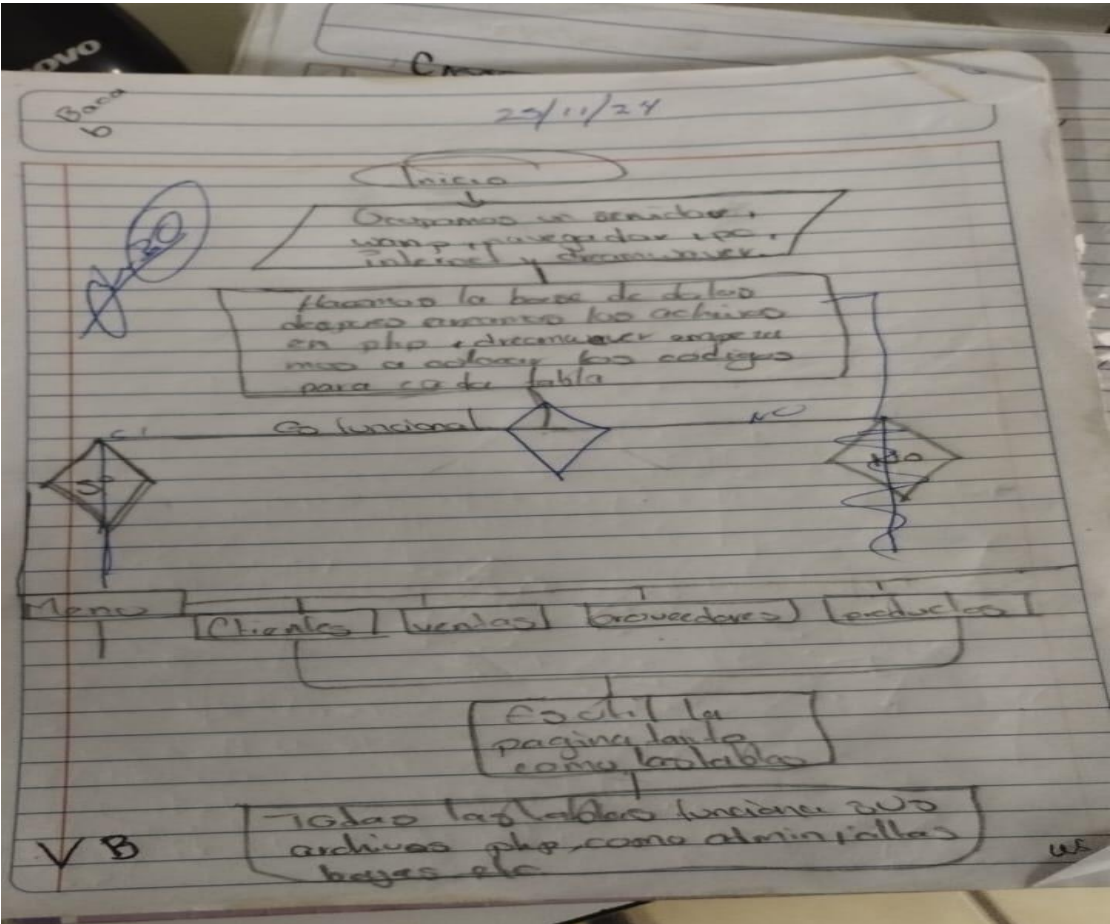 ovo
25/11/24
Inicio
Ocupamos un servidor,
wamp, navegador, pc,
internet y dreamwaver.
Hacemos la base de datos
en php, dreamwaver
mos a colocar los codigos
para cada tabla
Si Es funcional NO
Si No
Menu
Clientes ventas proveedores productos
Es útil la
pagina tanto
como las tablas
Todas las tablas funciona sus
archivos php como admin, altas
bajas etc
B